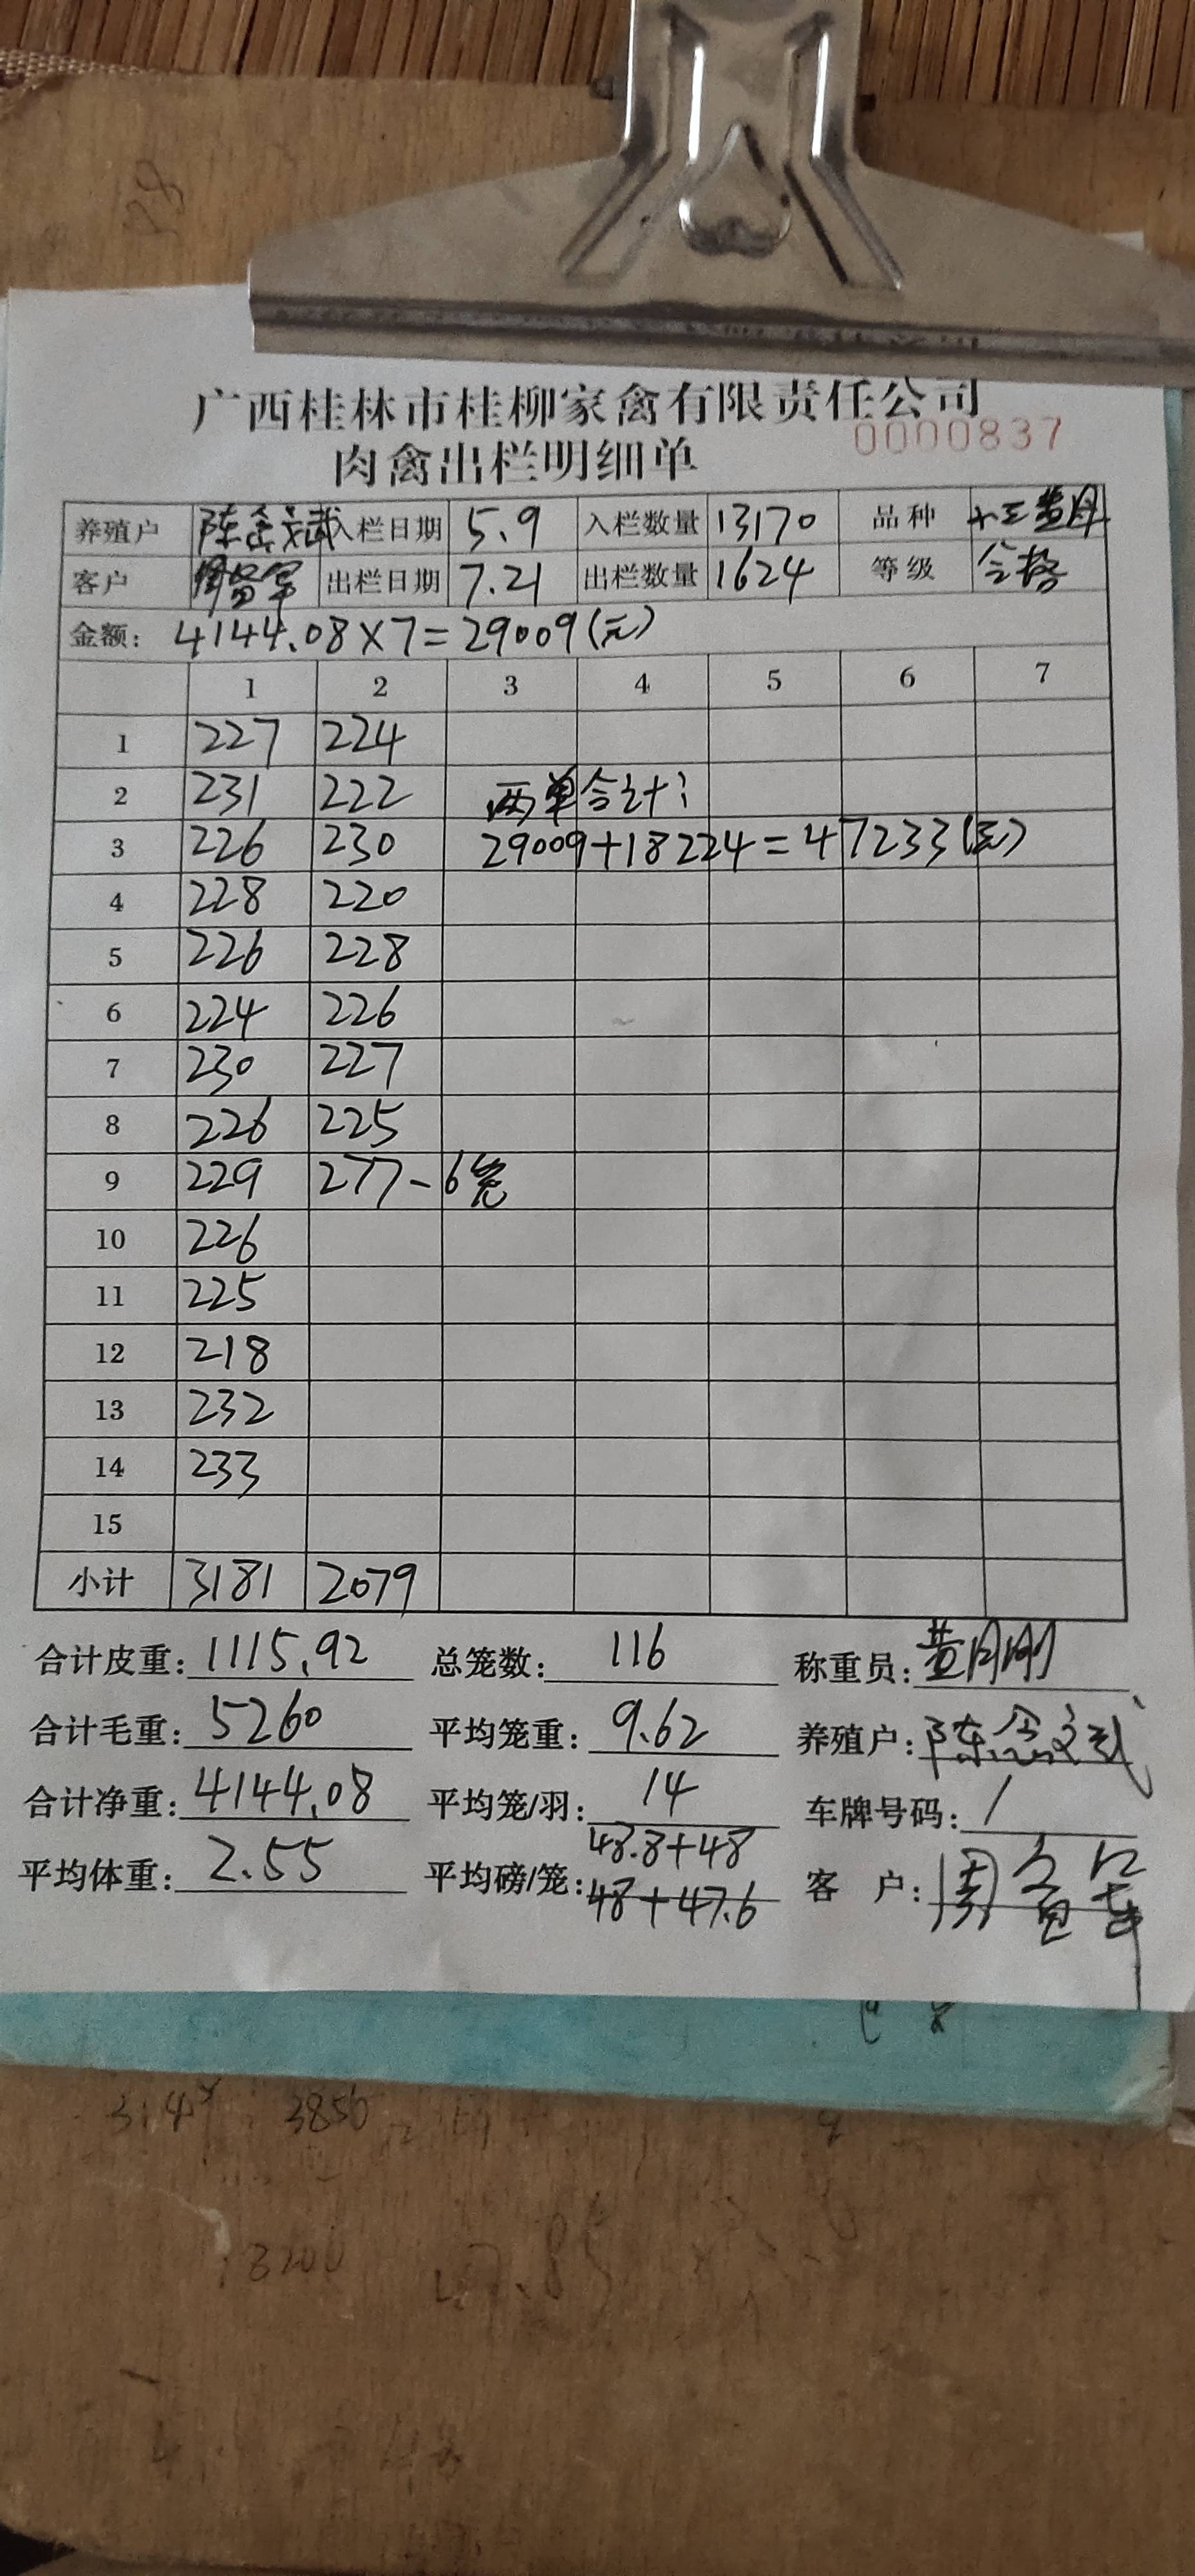 广西桂林市桂柳家禽有限责任公司
0000837
肉禽出栏明细单
养殖户 陈念文武 入栏日期 5.9 入栏数量 13170 品种
客户 出栏日期 7.21 出栏数量 1624 等级 合格
金额: 4144.08×7=29009(元)
1 2 3 4 5 6 7
1 227 224
2 231 222 两单合计:
3 226 230 29009+18224=47233(元)
4 228 220
5 226 228
6 224 226
7 230 227
8 226 225
9 229 277-6笼
10 226
11 225
12 218
13 232
14 233
15
小计 3181 2079
合计皮重: 1115.92 总笼数: 116 称重员: 黄月刚
合计毛重: 5260 平均笼重: 9.62 养殖户: 陈念文武
合计净重: 4144.08 平均笼/羽: 14 车牌号码: /
48.8+48
平均体重: 2.55 平均磅/笼: 48+47.6 客 户: 周
314 3850
3200